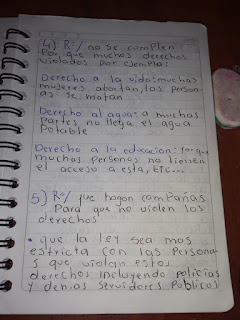 4) R:/ no se complen
Por que muchos derechos
violados por ejemplo:
Derecho a la vida: muchas
mujeres abortan, los person
as se matan
Derecho al agua: a muchas
Partes no lleja el agua
Potable
Derecho a la educacion: Por que
muchas personas no tienen
el acceso a esta, ETC...
5) R:/ que hagan compañas
Para que no violen los
derechos
• que la ley sea mas
estricta con las Persona
s que violan estos
derechos incluyendo policias
y demas servidores Publicos